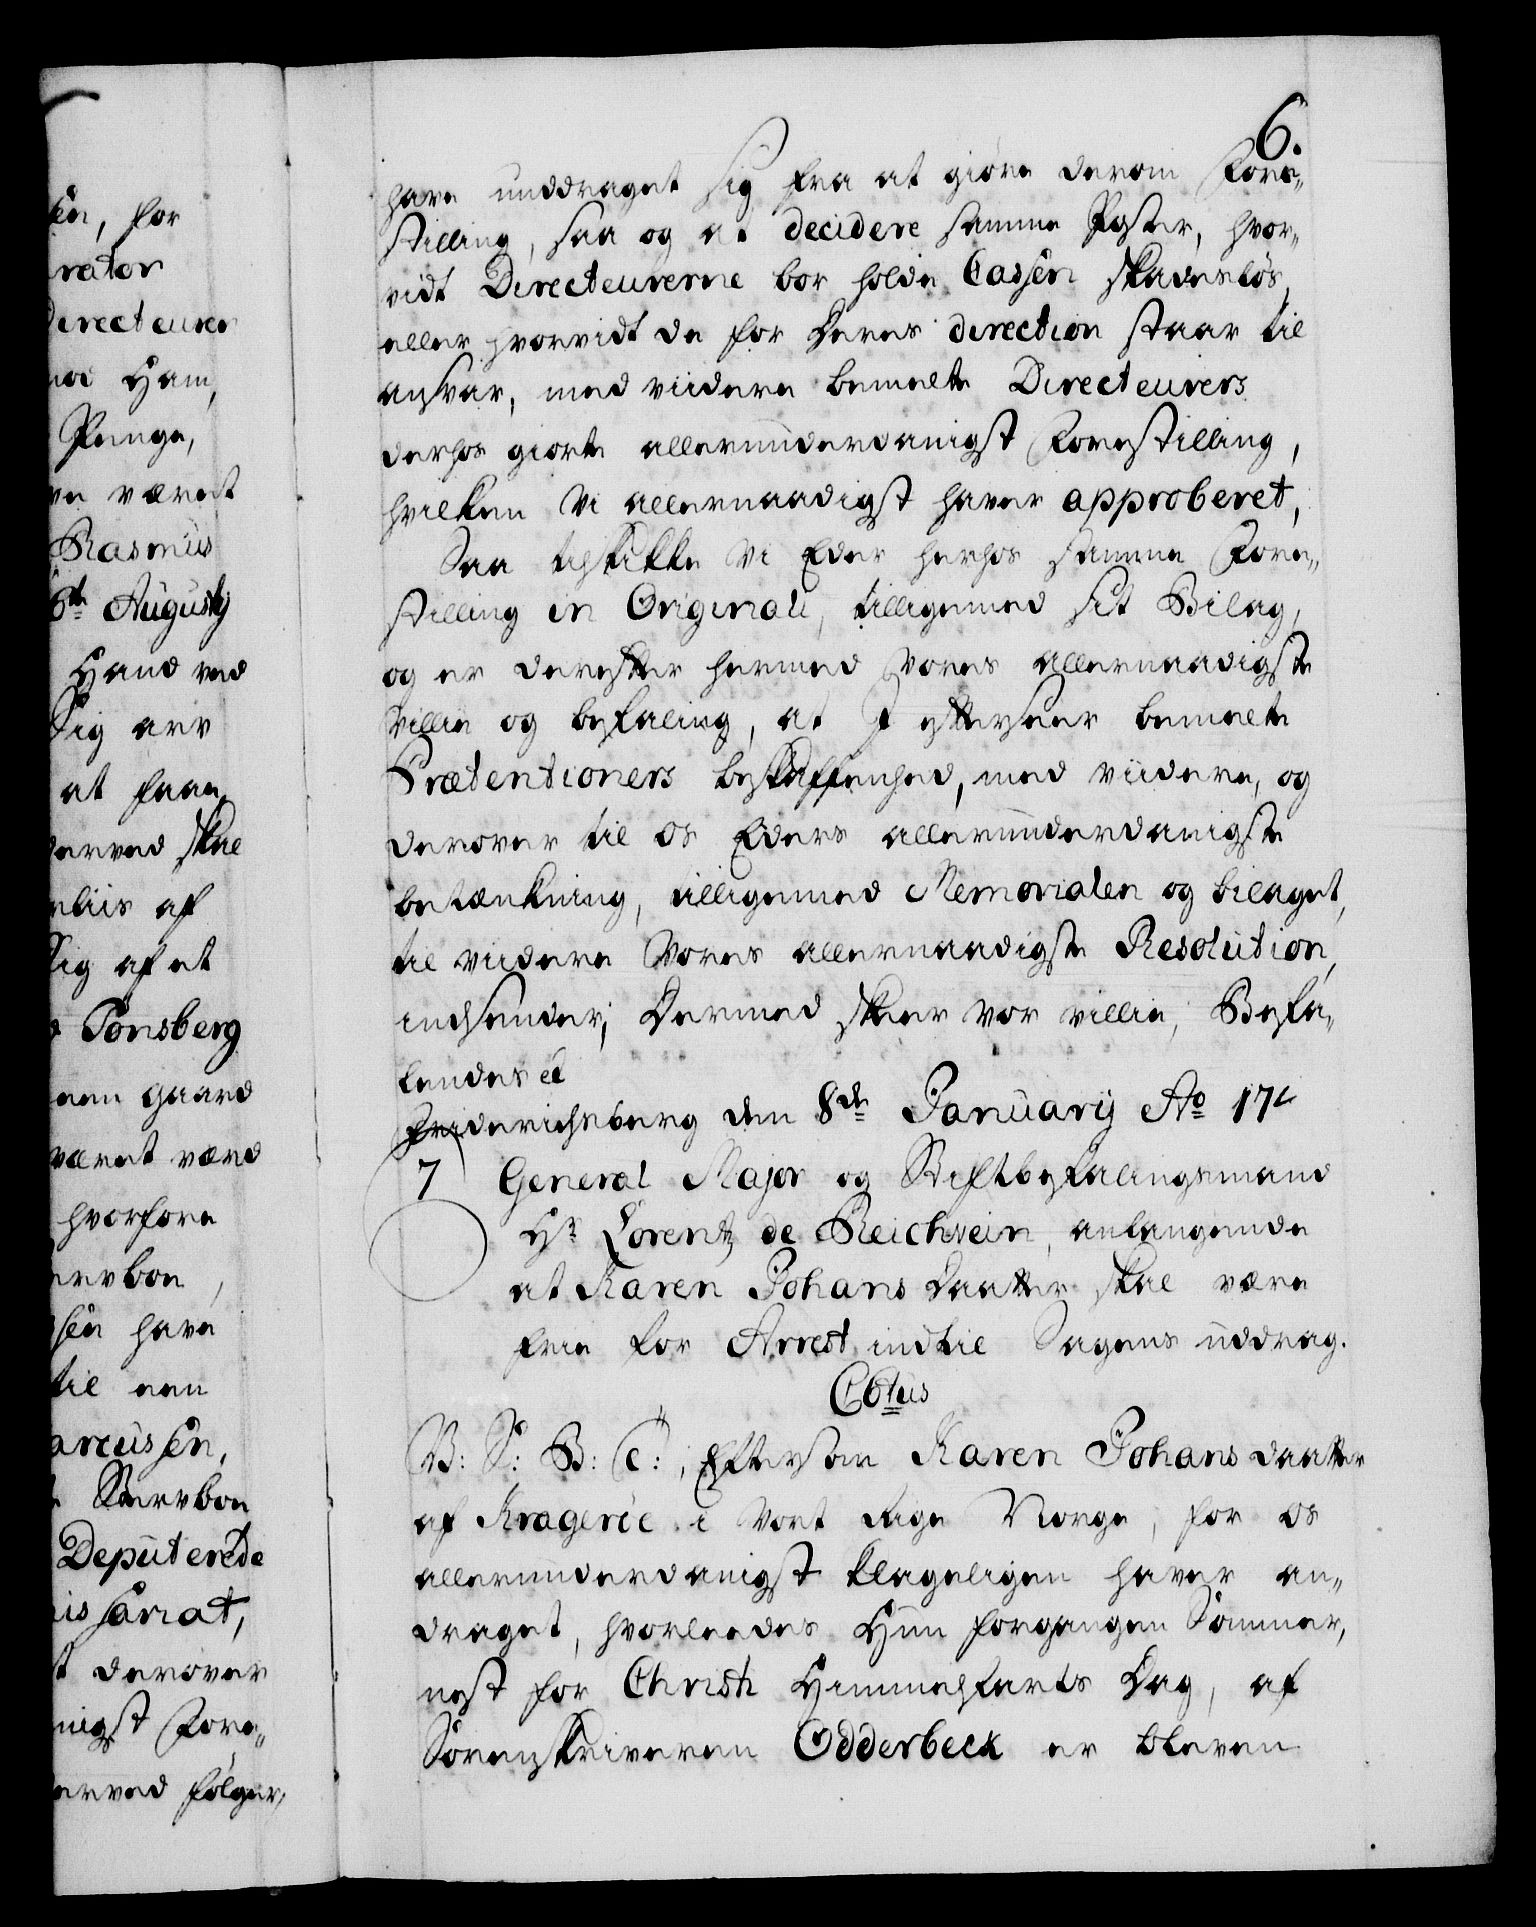 6.
have unddraget sig fra at giöre derom Fore-
stilling, saa og at decidere samme Poster, hvor-
vidt Directeurerne bör holde Cassen skadeslös,
eller hvorvidt de for deres direction staar til
ansvar, med viidere bemelte Directeurers
derhos giorte allerunderdanigst Forestilling,
hvilken Vi allernaadigst haver approberet,
Saa tilskikke Vi Eder herhos samme Fore-
stilling in Originali, tilligemed sit Bilag,
og er derefter hermed Vores allernaadigste
Villie og befaling, at I efterseer bemelte
Prætentioners beskaffenhed, med viidere, og
derover til os Eders allerunderdanigste
betænkning, tilligemed Memorialen og bilaget,
til viidere Vores allernaadigste Resolution,
indsender; Dermed skeer vor villie, Befa-
lendes et
Friderichsberg den 8de Januarij Ao 17
7 General Major og Stiftbefalingsmand
Hr Lorentz de Reichwein, anlangende
at Karen Johans Daatter skal være
frie for Arrest indtil Sagens uddrag.
C6tus
V: S: B: C:, Eftersom Karen Johans daatter
af Krageröe i Vort Rige Norge, for os
allerunderdanigst klageligen haver an-
draget, hvorleedes Hun forgangen Sommer,
nest for Christi Himmelfarts Dag, af
Sorenskriveren Odderbeck er bleven
sen, for
rator
Directeurer
Ham,
Penge,
ve været
Rasmus
6te Augusty
Hand ved
Sig arv
at faae,
derved skal
af
Sig af et
Tonsberg
een gaard
været værd
hvorfore
ervboe,
sen have
til een
arcussen,
Stervboe
Deputerede
issariat,
derover
nigst Fore-
erved fölger,